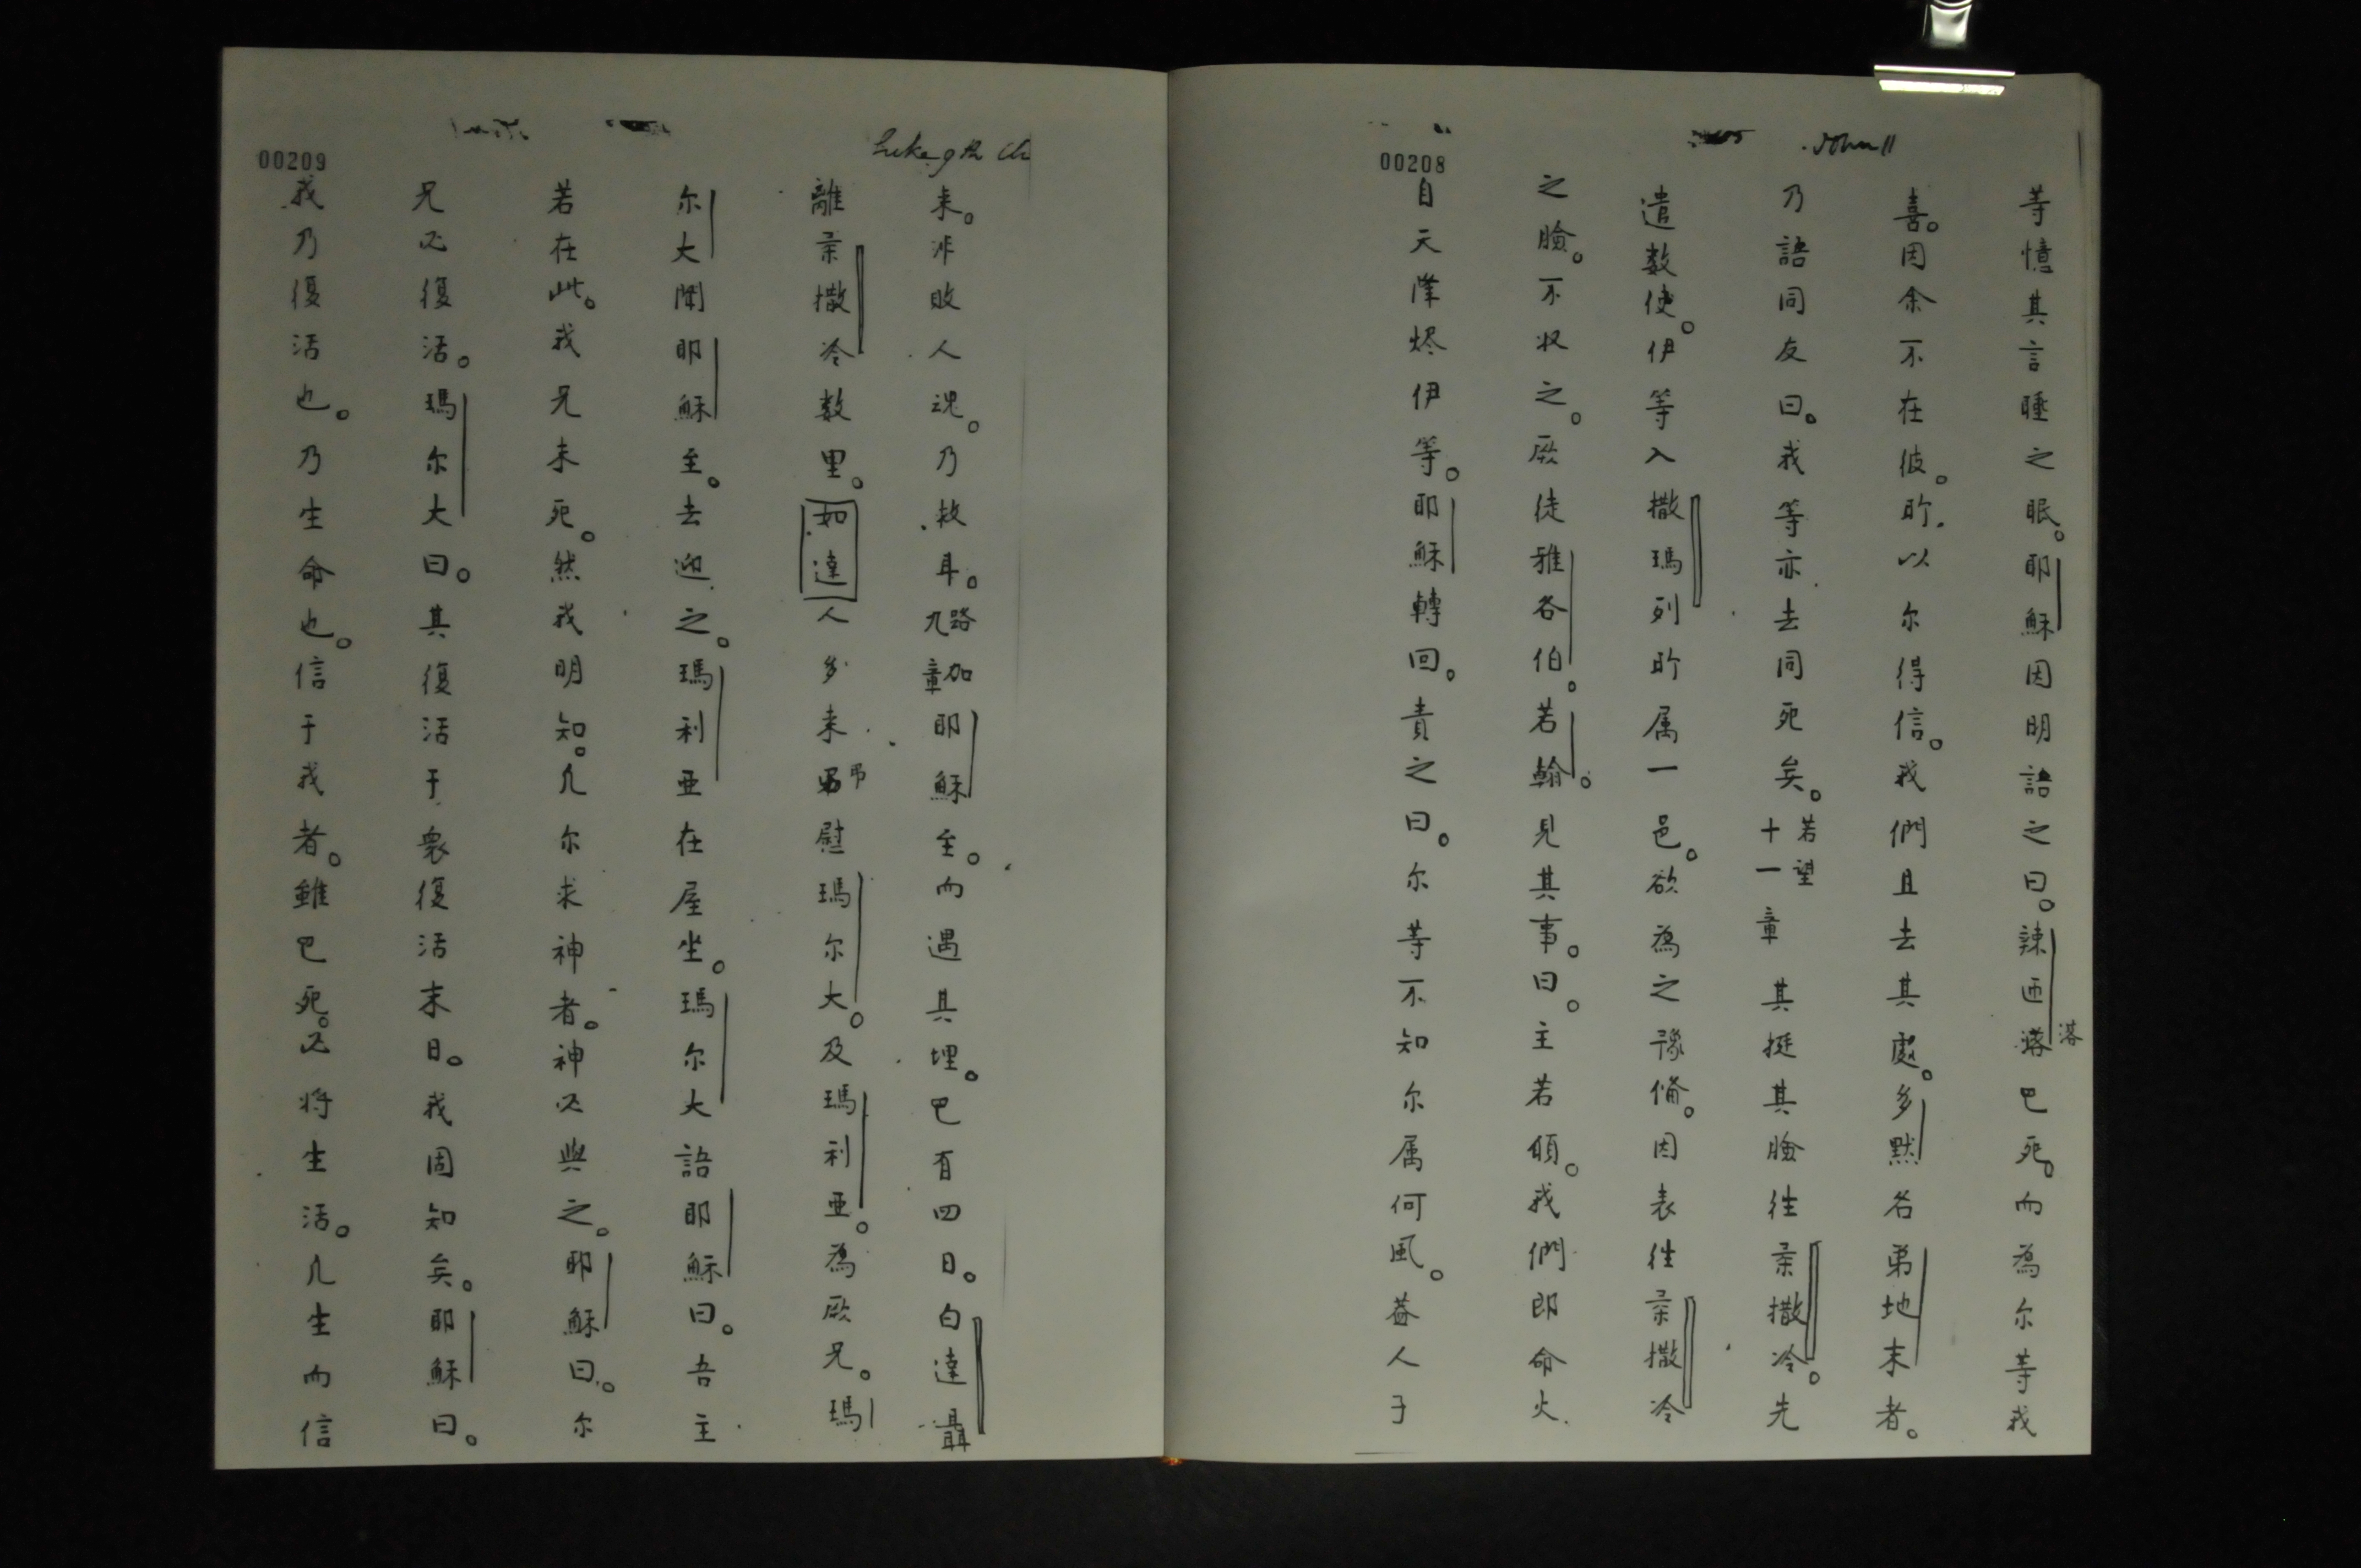 John 11
00208
等憶其言睡之眠。耶穌因明語之曰。辣匝落巴死。而為尔等我
落
喜。因余不在彼。昕以尔得信。我們且去其處。多默名弟地末者。
乃語同友曰。我等亦去同死矣。若望十一章其挺其臉往柔撒冷。先
遣数使。伊等入撒瑪列昕属一邑。欲為之豫俻。因表徃柔撒冷
之臉。不収之。厥徒雅各伯。若翰。見其事。曰。主若傾。我們即命火
自天降烬伊等。耶穌轉回。責之曰。尔等不知尔属何風。葢人子
Luke 9th Ch
00209
来。非敗人魂。乃救耳。路加九章耶穌至。而遇其埋。巴有四日。白達聶
離柔撒冷数里。如達人多来弔慰瑪尔大。及瑪利亜。為厥兄。瑪
尔大聞耶穌至。去迎之。瑪利亜在屋坐。瑪尔大語耶穌曰。吾主
若在此。我兄未死。然我明知。凢尔求神者。神必與之。耶穌曰。尔
兄必復活。瑪尔大曰。其復活于衆復活末日。我固知矣。耶穌曰。
我乃復活也。乃生命也。信于我者。雖巴死。必将生活。凢生而信